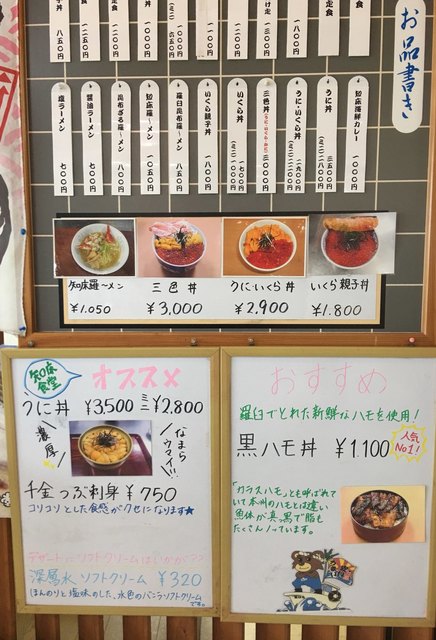 お品書き
知床海鮮カレー 一〇〇〇円
うに丼 三五〇〇円
(ミニ)二八〇〇円
うに・いくら丼 二九〇〇円
三色丼 三〇〇〇円
いくら丼 一七〇〇円
いくら親子丼 一八〇〇円
羅臼昆布羅〜メン 八五〇円
知床羅〜メン 一〇五〇円
昆布ざる羅〜メン 八〇〇円
醤油ラーメン 七〇〇円
塩ラーメン 七〇〇円
知床羅〜メン
¥1.050
三色丼
¥3,000
うに・いくら丼
¥2,900
いくら親子丼
¥1.800
知床食堂
オススメ
うに丼 ¥3,500 ミニ ¥2,800
濃厚
なまらウマイ!!
千金つぶ刺身 ¥750
コリコリとした食感がクセになります★
デザートにソフトクリームはいかが??
深層水ソフトクリーム ¥320
ほんのりと塩味のした、水色のバニラソフトクリーム
です。
おすすめ
羅臼でとれた新鮮なハモを使用!
黒ハモ丼 ¥1.100
人気
No1!
「カラスハモ」とも呼ばれてい
て本州のハモとは違い
魚体が真っ黒で脂も
たくさんノっています。